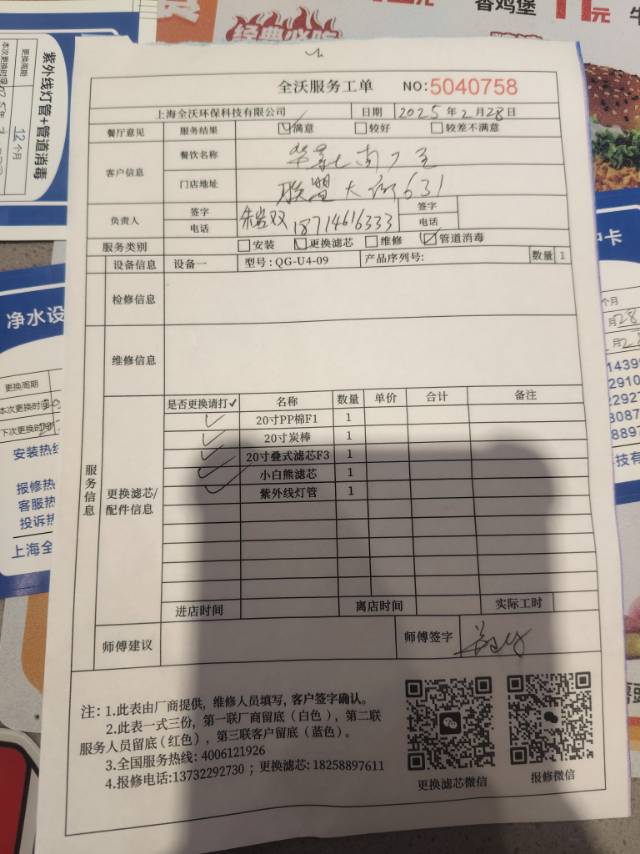 香鸡堡 11元
经典必吃
全沃服务工单 NO:5040758
上海全沃环保科技有限公司 日期 2025年2月28日
餐厅意见 服务结果 ☑满意 □较好 □较差不满意
客户信息 餐饮名称
门店地址 联盟大街631
负责人 签字 签字
电话 18714616333 电话
服务类别 □安装 ☑更换滤芯 □维修 ☑管道消毒
设备信息 设备一 型号:QG-U4-09 产品序列号: 数量 1
检修信息
维修信息
服务信息
更换滤芯/配件信息
是否更换请打✓ 名称 数量 单价 合计 备注
✓ 20寸PP棉F1 1
✓ 20寸炭棒 1
✓ 20寸叠式滤芯F3 1
✓ 小白熊滤芯 1
✓ 紫外线灯管 1
进店时间 离店时间 实际工时
师傅建议 师傅签字
注：1.此表由厂商提供，维修人员填写，客户签字确认。
2.此表一式三份，第一联厂商留底（白色），第二联
服务人员留底（红色），第三联客户留底（蓝色）。
3.全国服务热线: 4006121926
4.报修电话:13732292730；更换滤芯: 18258897611
更换滤芯微信 报修微信
紫外线灯管+管道消毒
更换周期 12个月
本次更换时间
净水设
更换周期
本次更换时间
下次更换时间
安装热线
报修热
客服热
投诉热
上海全
卡
个月
月28